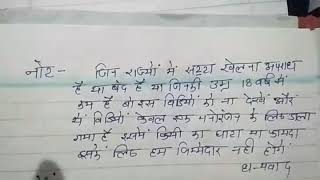 नोट - जिन राज्यों में सट्टा खेलना अपराध
है या बंद है या जिनकी उम्र 18 वर्ष से
कम है वो इस विडियो को ना देखें और
ये विडियो केवल एक मनोरंजन के लिए डाला
गया है इसमें किसी का घाटा या फायदा
उसके लिए हम जिम्मेदार नहीं होंगे
धन्यवाद